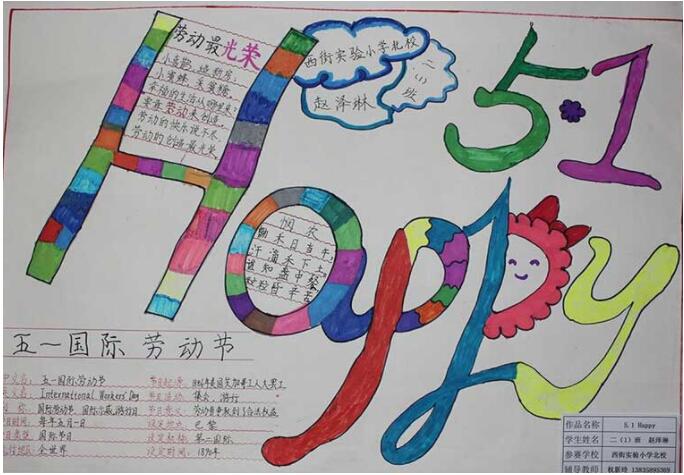 劳动最光荣
小喜鹊,造新房;
小蜜蜂,采蜜糖。
幸福的生活从哪里来?
要靠劳动来创造。
劳动的快乐说不尽,
劳动的创造最光荣。
西街实验小学北校
二(1)班
赵泽琳
5·1
Happy
悯农
锄禾日当午,
汗滴禾下土。
谁知盘中餐
粒粒皆辛苦
五一国际劳动节
五一国际劳动节
International Workers' Day
国际劳动节、国际示威游行日
每年五月一日
国际节日
全世界
节日起源: 1886年美国芝加哥工人大罢工
节日活动: 集会、游行
节日意义: 劳动者争取到了合法权益
设定地点: 巴黎
第二国际
设定时间: 1890年
作品名称 5.1 Happy
学生姓名 二(1)班 赵泽琳
参赛学校 西街实验小学北校
辅导教师 13835895369